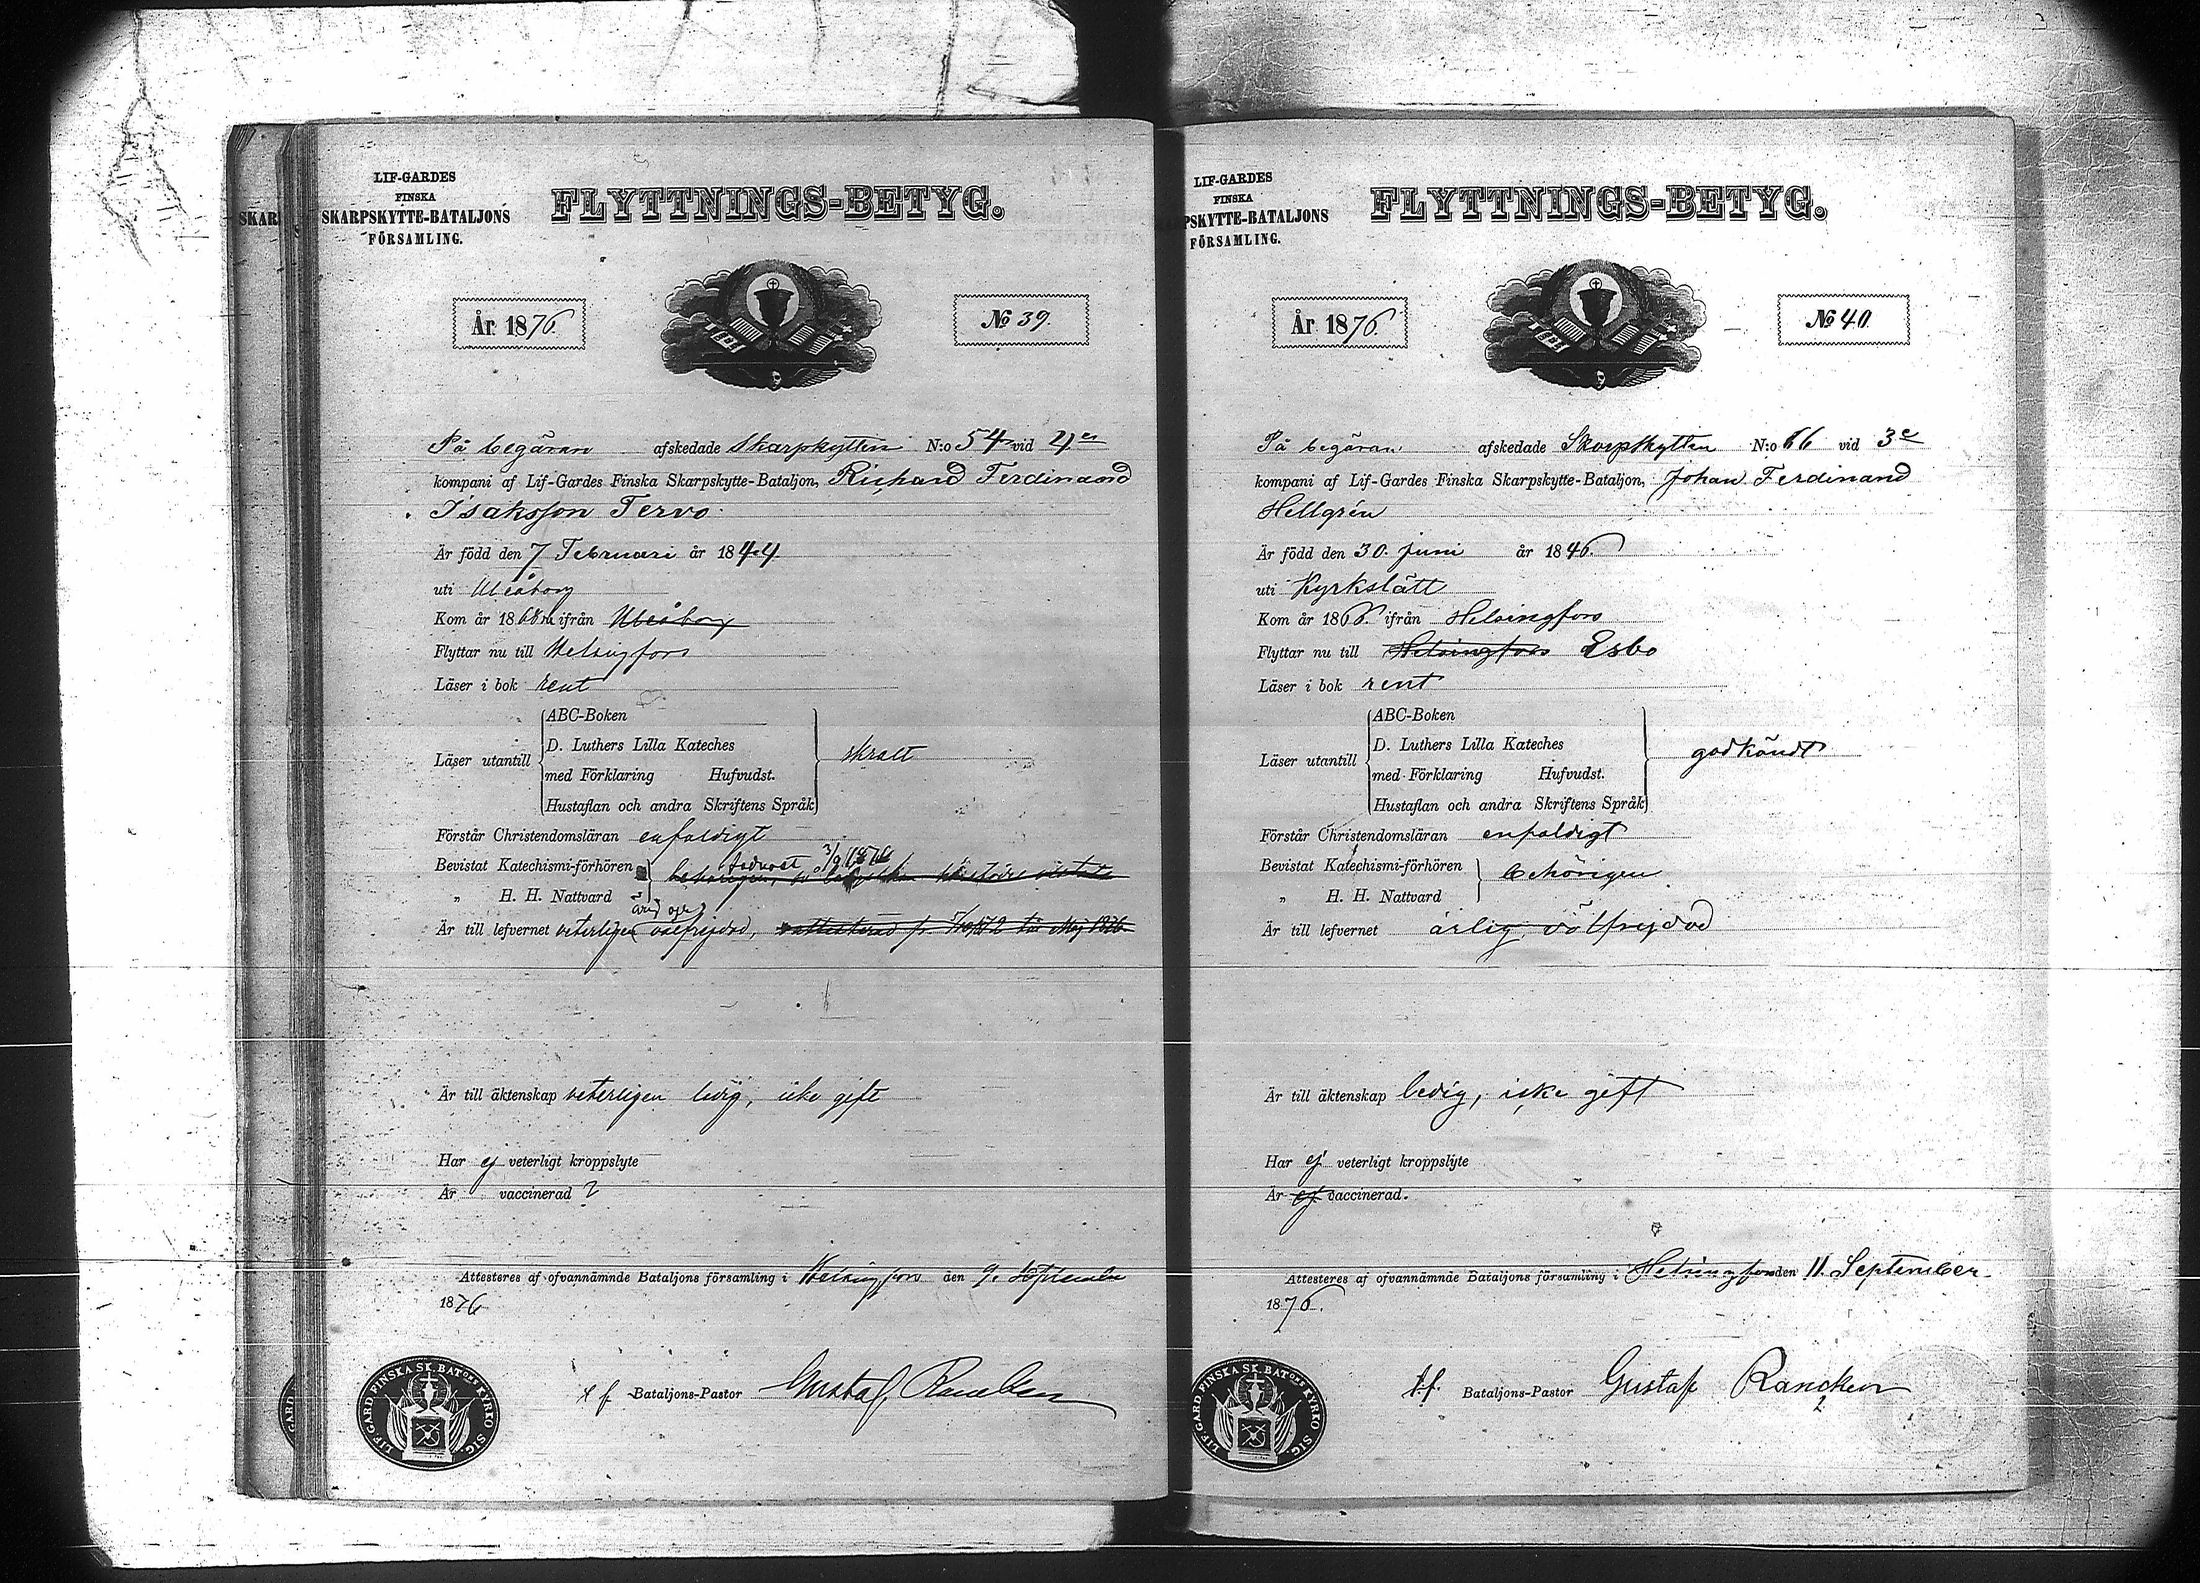 SKAR
LIF-GARDES
FINSKA
SKARPSKYTTE-BATALJONS
FÖRSAMLING.
FLYTTNINGS-BETYG.
År 1876.
№ 39.
På begäran afskedade Skarpskytten N:o 54 vid 4de
kompani af Lif-Gardes Finska Skarpskytte-Bataljon, Richard Ferdinand
Isaksson Tervo.
Är född den 7 Februari år 1844
uti Uleåborg
Kom år 1868 ifrån Uleåborg
Flyttar nu till Helsingfors
Läser i bok rent
Läser utantill
ABC-Boken
D. Luthers Lilla Kateches
med Förklaring Hufvudst.
Hustaflan och andra Skriftens Språk
skralt
Förstår Christendomsläran enfaldigt
Bevistat Katechismi-förhören
" H. H. Nattvard
3/9 1876
Är till lefvernet veterligen välfrejdad,
Är till äktenskap veterligen ledig, icke gift
Har ej veterligt kroppslyte
Är vaccinerad ?
Attesteres af ofvannämnde Bataljons församling i Helsingfors den 9. September
1876
t f Bataljons-Pastor Gustaf Rancken
LIF-GARD. FINSKA SK. BAT:ONS KYRKO SIG.
LIF-GARDES
FINSKA
PSKYTTE-BATALJONS
FÖRSAMLING.
FLYTTNINGS-BETYG.
År 1876.
№ 40.
På begäran afskedade Skarpskytten N:o 66 vid 3e
kompani af Lif-Gardes Finska Skarpskytte-Bataljon, Johan Ferdinand
Hellgrén
Är född den 30. Juni år 1846.
uti Kyrkslätt
Kom år 1866. ifrån Helsingfors
Flyttar nu till Helsingfors Esbo
Läser i bok rent
Läser utantill
ABC-Boken
D. Luthers Lilla Kateches
med Förklaring Hufvudst.
Hustaflan och andra Skriftens Språk
godkändt
Förstår Christendomsläran enfaldigt
Bevistat Katechismi-förhören
" H. H. Nattvard
behörigen
Är till lefvernet ärlig, välfrejdad
Är till äktenskap ledig, icke gift
Har ej veterligt kroppslyte
Är ej vaccinerad.
Attesteres af ofvannämnde Bataljons församling i Helsingfors den 11. September
1876.
t.f. Bataljons-Pastor Gustaf Rancken
LIF-GARD. FINSKA SK. BAT:ONS KYRKO SIG.